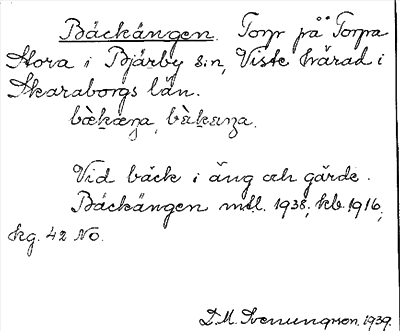 Bäckängen. Torp på Torpa
Stora i Bjärby s:n, Viste härad i
Skaraborgs län.
bæ̀kæŋa, bæ̀kæŋa.
Vid bäck i äng och gärde.
Bäckängen mtl. 1938, kb. 1916,
kg. 42 NO.
D.M. Svenungsson. 1939.